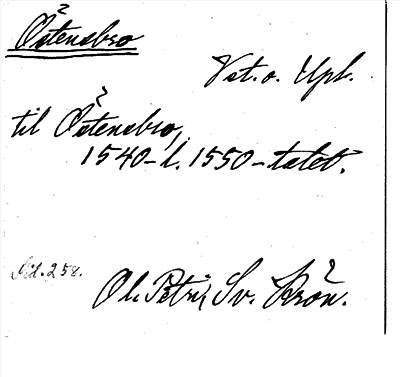 Östensbro
Vst. o. Upl.
til Östensbro,
1540- l. 1550-talet.
Sid. 258.
Ol. Petri, Sv. Krön.